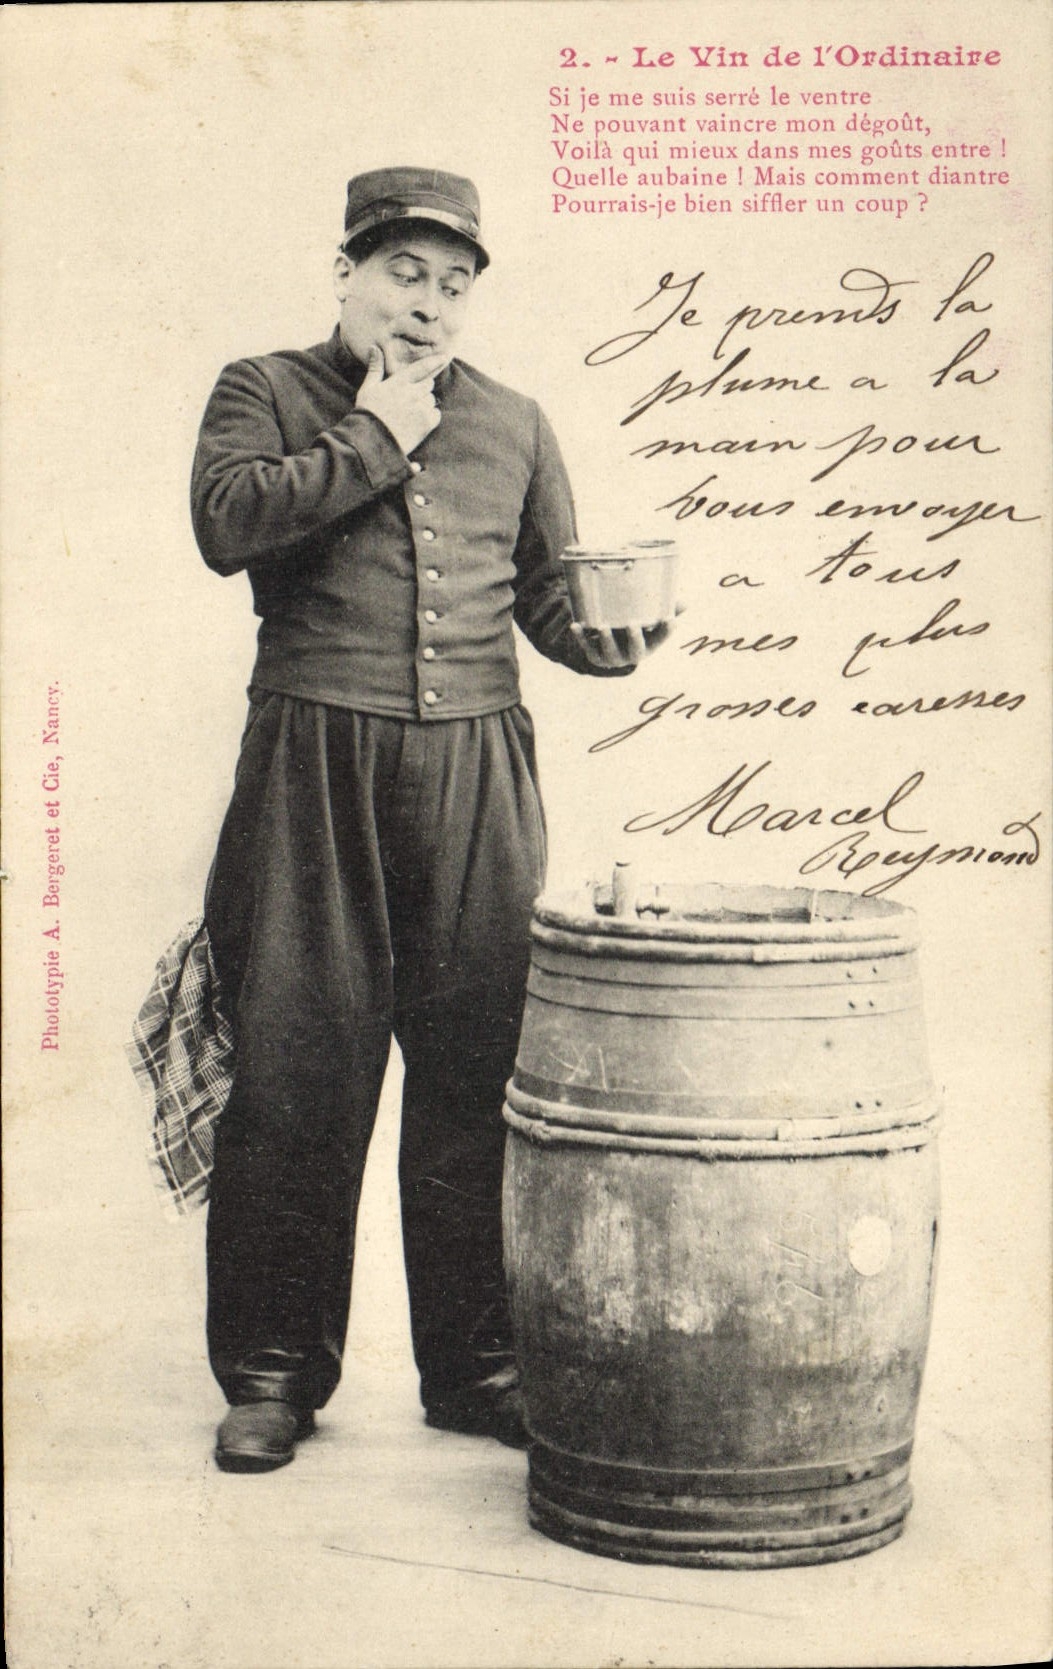 2. - Le Vin de l'Ordinaire
Si je me suis serré le ventre
Ne pouvant vaincre mon dégoût,
Voilà qui mieux dans mes goûts entre !
Quelle aubaine ! Mais comment diantre
Pourrais-je bien siffler un coup ?
Je prends la
plume a la
main pour
vous envoyer
a tous
mes plus
grosses caresses
Marcel
Reymond
Phototypie A. Bergeret et Cie, Nancy.